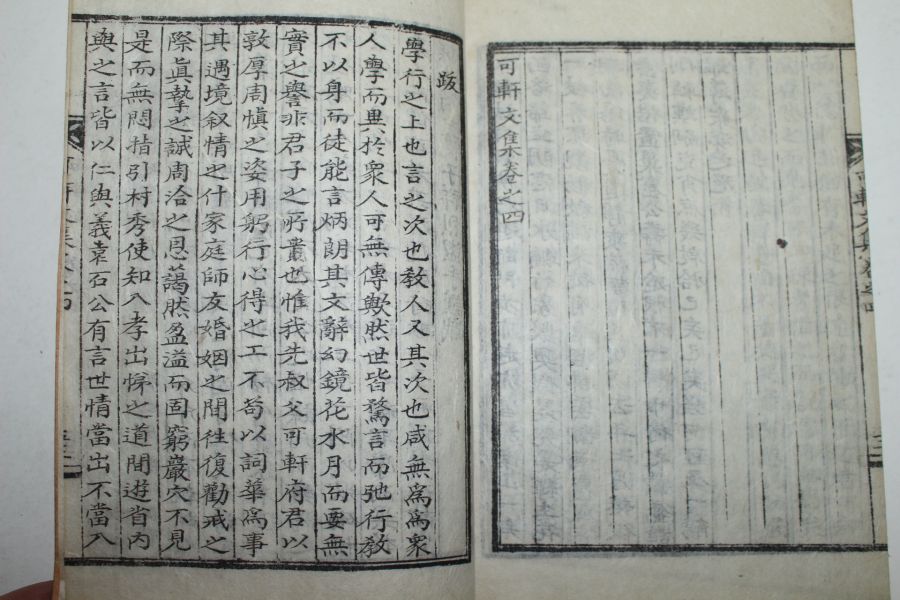 可軒文集卷之四
跋
學行之上也言之次也敎人又其次也咸無焉爲衆
人學而異於衆人可無傳歟然世皆騖言而弛行敎
不以身而徒能言炳朗其文辭幻鏡花水月而要無
實之譽非君子之所貴也惟我先叔父可軒府君以
敦厚周愼之姿用躬行心得之工不苟以詞華爲事
其遇境叙情之什家庭師友婚姻之間往復勸戒之
際眞摯之誠周洽之恩藹然盈溢而固窮巖穴不見
是而無悶指引村秀使知入孝出悌之道間遊省內
與之言皆以仁與義袁石公有言世情當出不當入